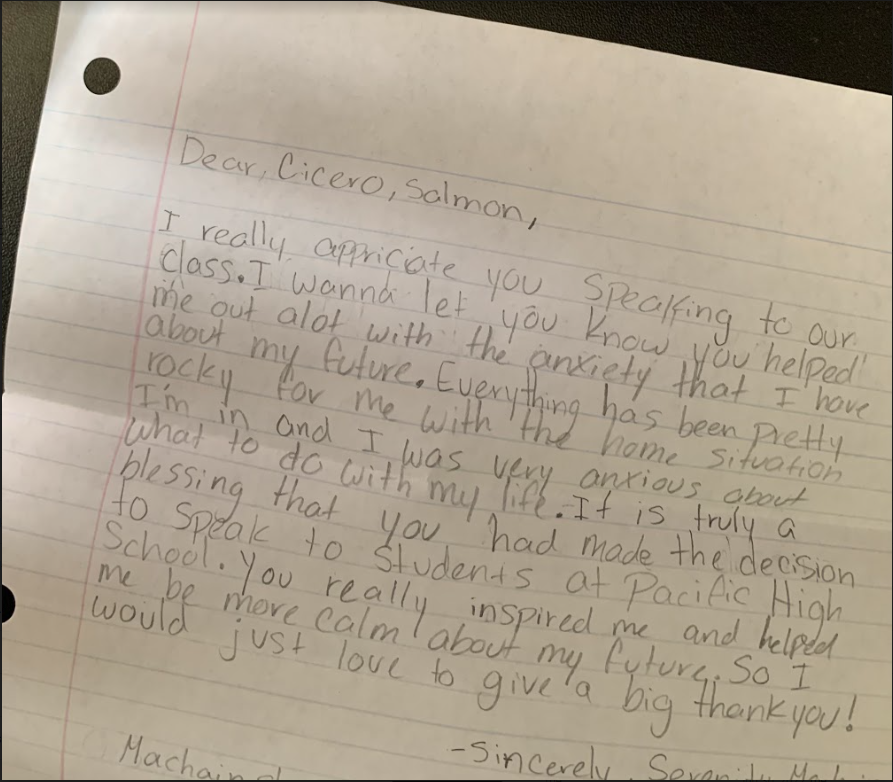 Dear, Cicero, Salmon,
I really appriciate you speaking to our
class. I wanna let you know you helped
me out alot with the anxiety that I have
about my future. Everything has been pretty
rocky for me with the home situation
I'm in and I was very anxious about
what to do with my life. It is truly a
blessing that you had made the decision
to speak to students at Pacific High
School. You really inspired me and helped
me be more calm about my future. So I
would just love to give a big thank you!
-Sincerely, Serenity
Machain